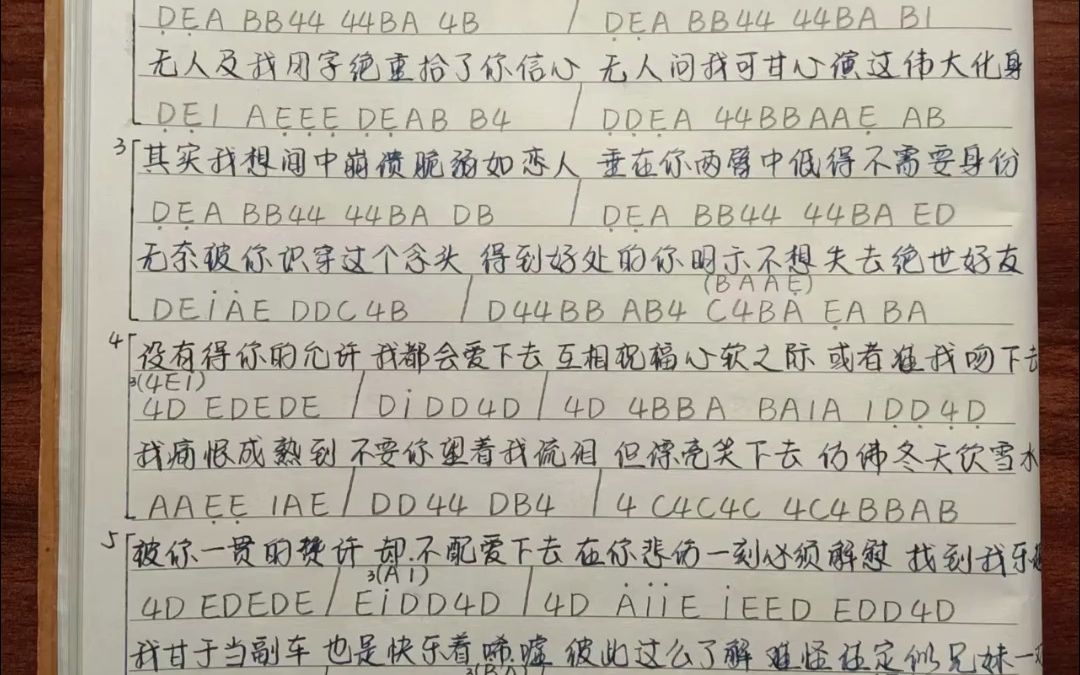 DEA BB44 44BA 4B / DEA BB44 44BA B1
无人及我用字绝重拾了你信心 无人问我可甘心演这伟大化身
DE1 AEEE DEAB B4 / DDEA 44BBAAE AB
3 其实我想间中崩溃脆弱如恋人 垂在你两臂中低得不需要身份
DEA BB44 44BA DB / DEA BB44 44BA ED
无奈被你识穿这个念头 得到好处的你明示不想失去绝世好友
(BAAE)
DEiȦE DDC4B / D44BB AB4 C4BA EA BA
4 没有得你的允许 我都会爱下去 互相祝福心软之际 或者准我吻下去
3(4E1)
4D EDEDE / DiDD4D / 4D 4BBA BA1A 1DD4D
我痛恨成熟到 不要你望着我流泪 但漂亮笑下去 仿佛冬天饮雪水
AAEE 1AE / DD44 DB4 / 4 C4C4C 4C4BBAB
5 被你一贯的赞许 却不配爱下去 在你悲伤一刻必须解慰 找到我乐
3(A1)
4D EDEDE / EiDD4D / 4D ȦiiE iEED EDD4D
我甘于当副车 也是快乐着唏嘘 彼此这么了解 难怪注定似兄妹一
3(BA)